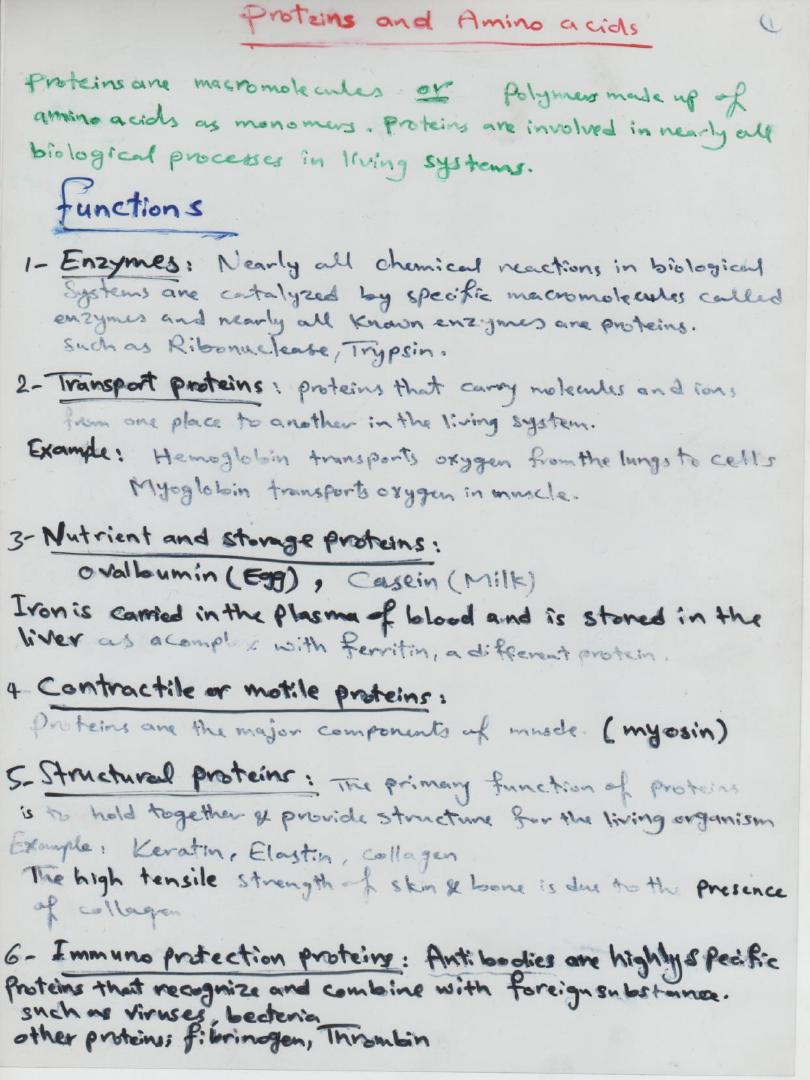 Proteins and Amino acids
1
Proteins are macromolecules or Polymers made up of
amino acids as monomers. Proteins are involved in nearly all
biological processes in living systems.
Functions
1- Enzymes: Nearly all chemical reactions in biological
Systems are catalyzed by specific macromolecules called
enzymes and nearly all known enzymes are proteins.
Such as Ribonuclease, Trypsin.
2- Transport proteins: proteins that carry molecules and ions
from one place to another in the living system.
Example: Hemoglobin transports oxygen from the lungs to cells
Myoglobin transports oxygen in muscle.
3- Nutrient and storage proteins:
Ovalbumin (Egg), Casein (Milk)
Iron is carried in the plasma of blood and is stored in the
liver as a complex with ferritin, a different protein.
4- Contractile or motile proteins:
Proteins are the major components of muscle. (myosin)
5- Structural proteins: The primary function of proteins
is to hold together & provide structure for the living organism
Example: Keratin, Elastin, collagen
The high tensile strength of skin & bone is due to the presence
of collagen
6- Immuno protection proteins: Antibodies are highly specific
Proteins that recognize and combine with foreign substance.
such as viruses, becteria
other proteins; fibrinogen, Thrombin